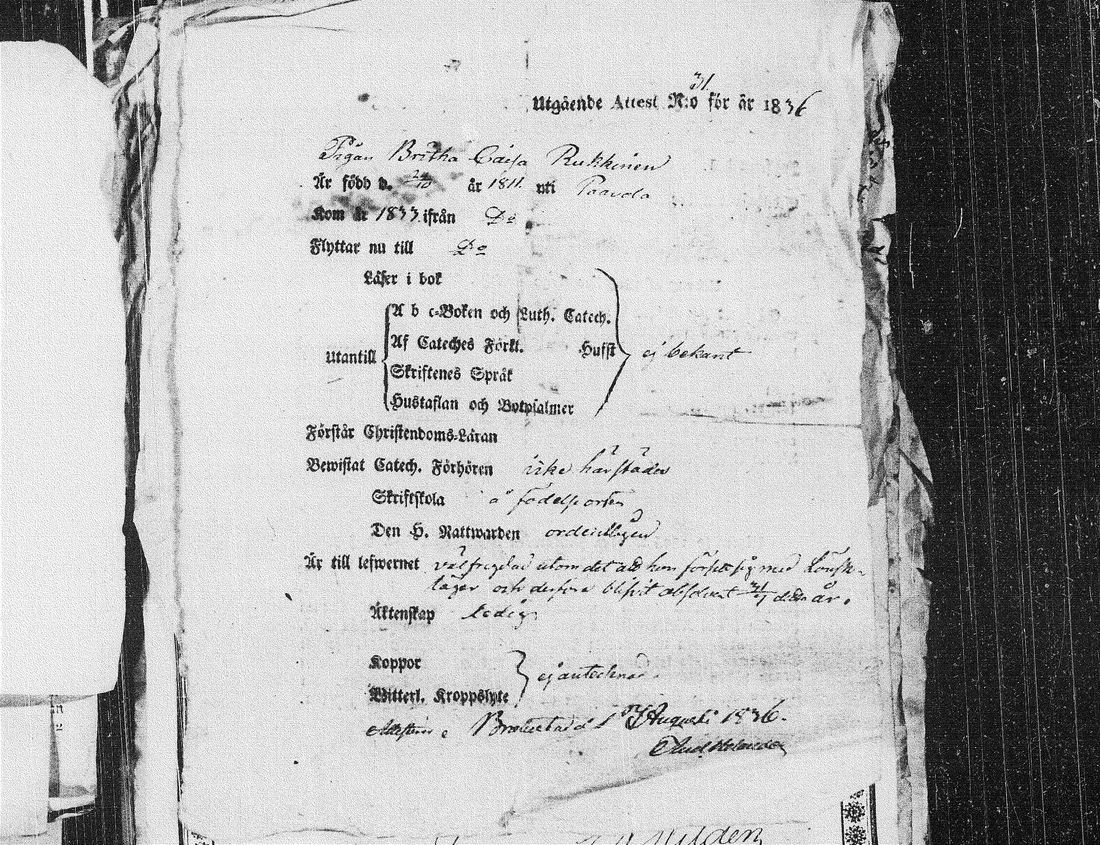 31.
Utgående Attest N:o för år 1836
Pigan Britha Caisa Rukkinen
Är född d. 24/10 år 1811. uti Paavola
Kom år 1833 ifrån Do
Flyttar nu till Do
Läser i bok
A b c-Boken och Luth. Catech.
Af Cateches Förkl. Hufft
Utantill ej bekant
Skriftenes Språk
Hustaflan och Botpsalmer
Förstår Christendoms-Läran
Bewistat Catech. Förhören icke härstädes
Skriftskola å födelseorten
Den H. Nattwarden ordentligen
Är till lefwernet välfrejdad utom det att hon försett sig med lönsk-
läger och derföre blifvit absolverat 31/7 detta år.
Äktenskap ledig
Koppor
ej antecknad.
Witterl. Kroppslyte
Brahestad d. Augusti 1836.